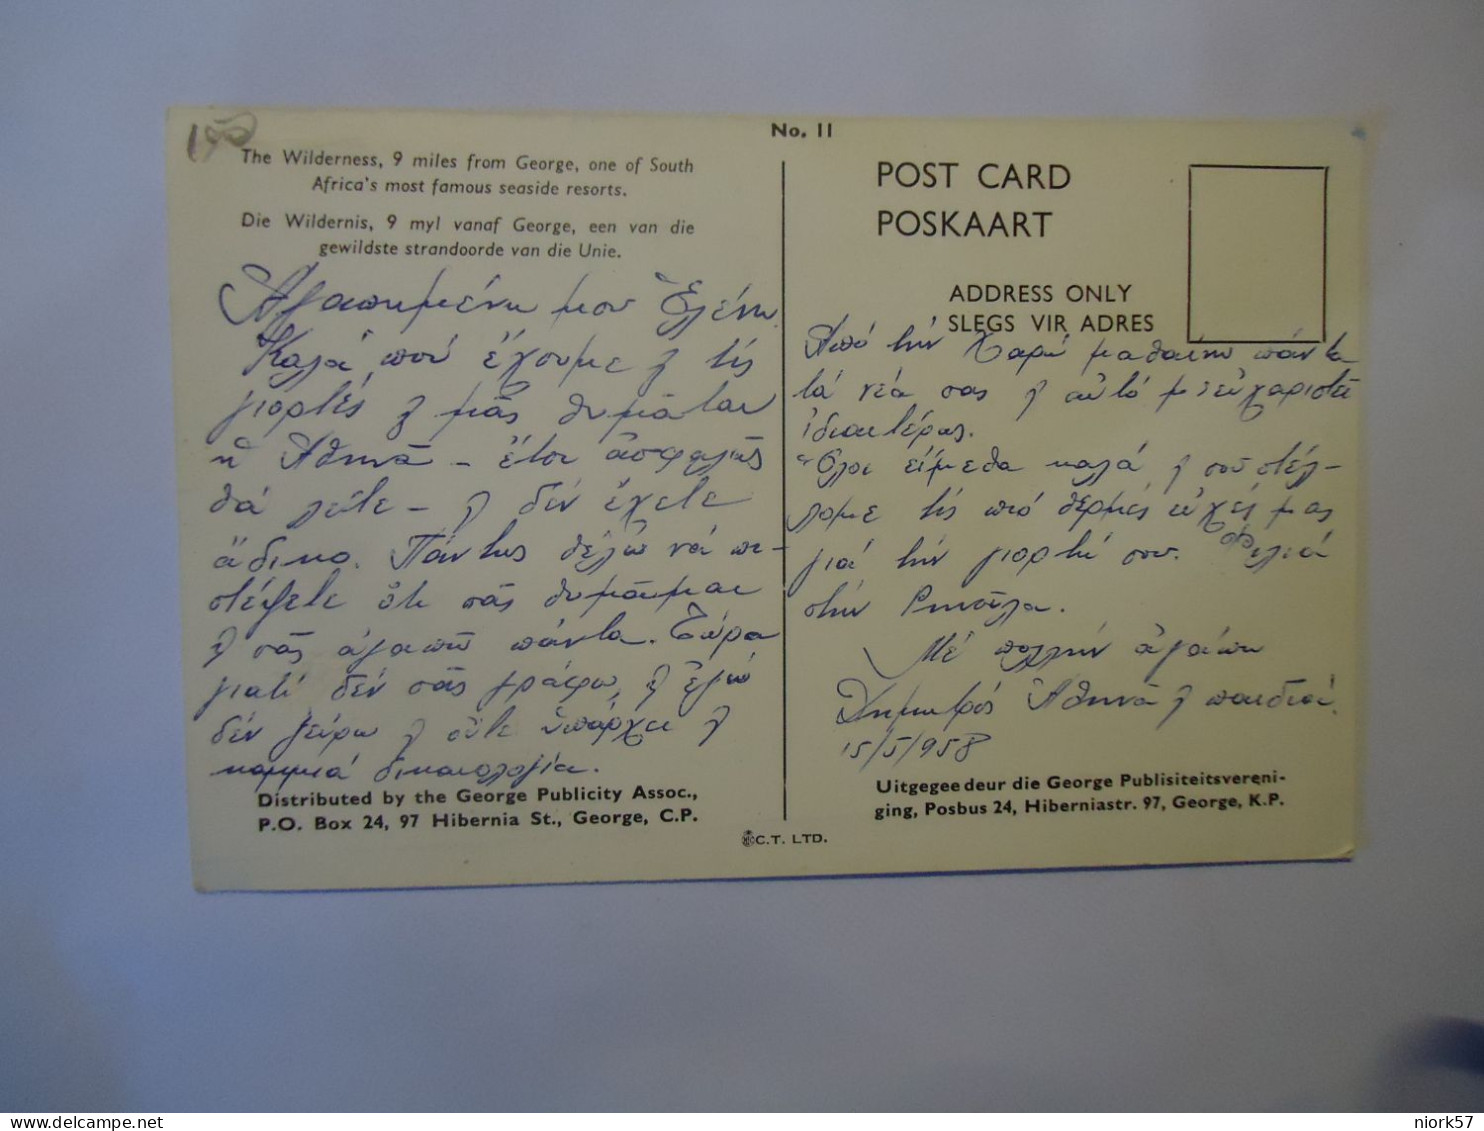 150
No. 11
The Wilderness, 9 miles from George, one of South
Africa's most famous seaside resorts.
Die Wildernis, 9 myl vanaf George, een van die
gewildste strandoorde van die Unie.
Ἀγαπημένη μου Ἑλένη
Καλά ποὺ ἔχουμε καὶ τὶς
γιορτές καὶ μᾶς θυμᾶται
ἡ Ἀθηνᾶ – ἔτσι ἀσφαλῶς
θά λέτε – καὶ δέν ἔχετε
ἄδικο. Πάντως θέλω νά πι-
στέψετε ὅτι σᾶς θυμᾶμαι
καὶ σᾶς ἀγαπῶ πάντα. Τώρα
γιατί δέν σᾶς γράφω, καὶ ἐγώ
δέν ξεύρω καὶ οὔτε ὑπάρχει καὶ
καμμιά δικαιολογία.
Distributed by the George Publicity Assoc.,
P.O. Box 24, 97 Hibernia St., George, C.P.
POST CARD
POSKAART
ADDRESS ONLY
SLEGS VIR ADRES
Ἀπό τήν Χαρά μαθαίνω πάντα
τά νέα σας καὶ αὐτό μ' εὐχαριστεῖ
ἰδιαιτέρως.
Ὅλοι εἴμεθα καλά καὶ σοῦ στέλ-
λομε τίς πιό θερμές εὐχές μας
γιά τήν γιορτή σου. Φιλιά
στήν Ρηνούλα.
Μέ πολλήν ἀγάπη
Δημητρός Ἀθηνᾶ καὶ παιδιά.
15/5/958
Uitgegee deur die George Publisiteitsvereni-
ging, Posbus 24, Hiberniastr. 97, George, K.P.
C.T. LTD.
niork57